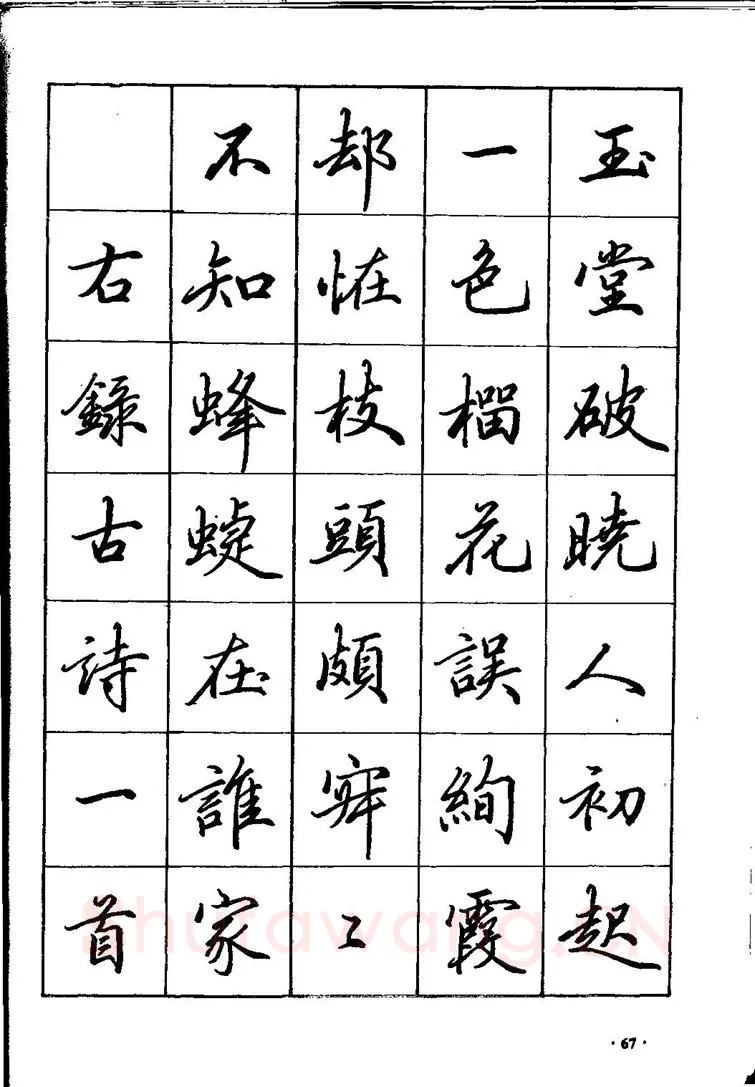 玉堂破曉人初起
一色榴花誤絢霞
却恠枝頭頗寂〻
不知蜂蝶在誰家
右錄古詩一首
·67·
Shufawang.CN